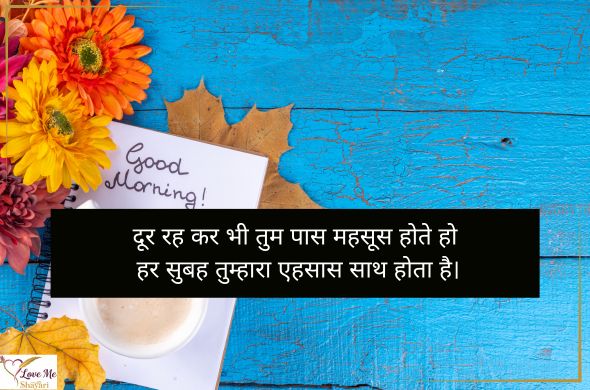 Good
Morning!
दूर रह कर भी तुम पास महसूस होते हो
हर सुबह तुम्हारा एहसास साथ होता है।
Love Me
Shayari